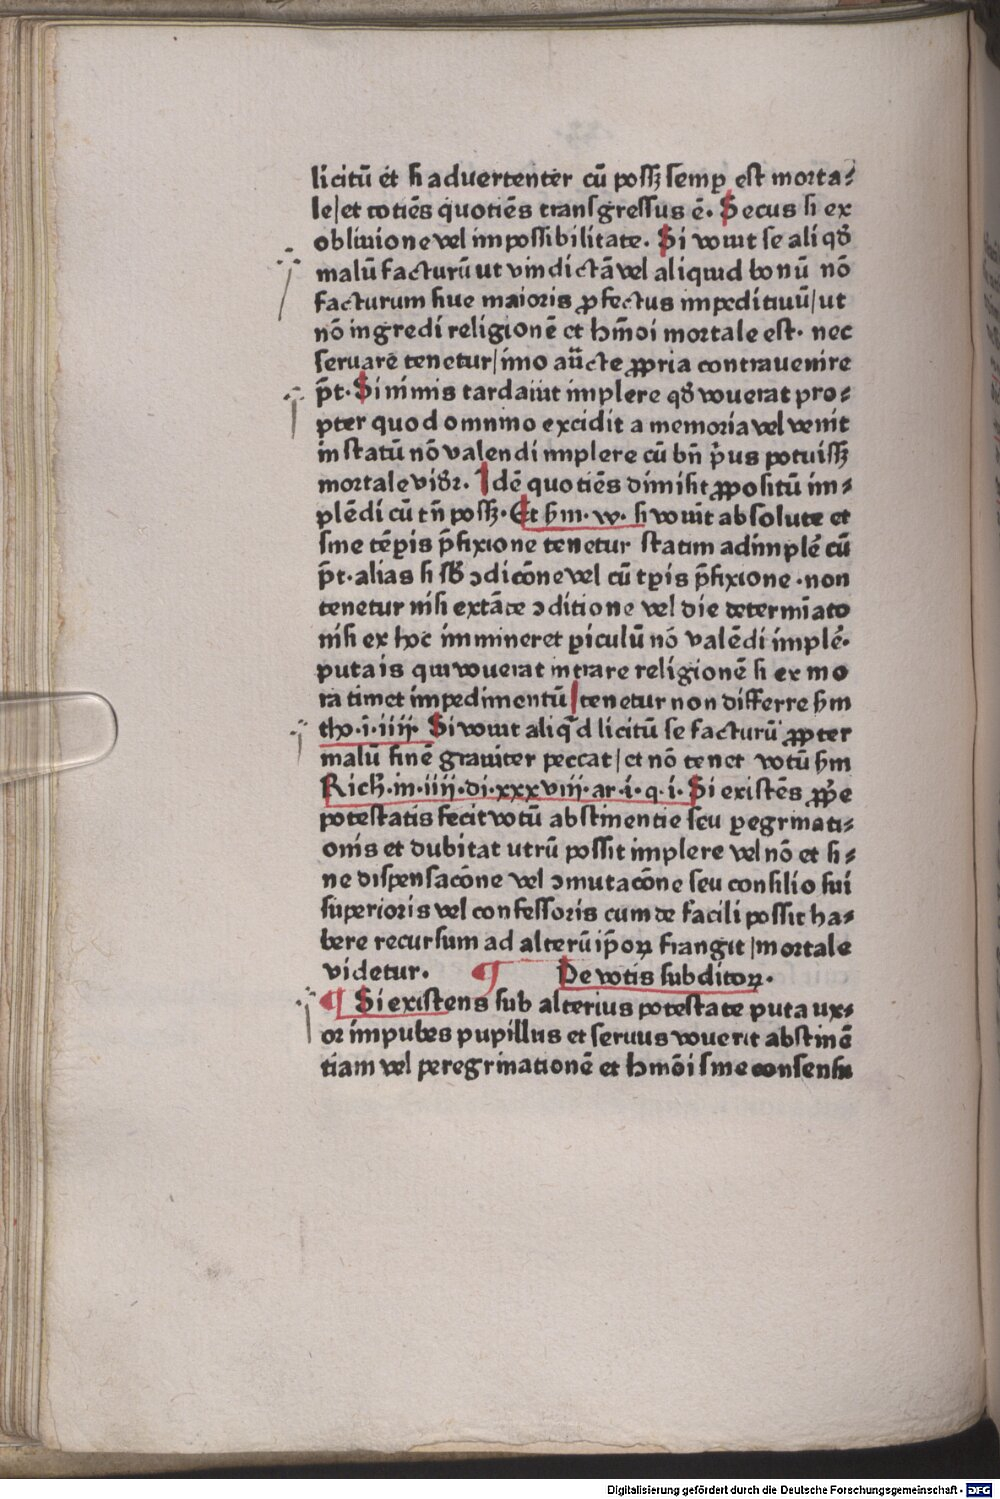 licitū et si aduertenter cū possꝫ semꝑ est morta⸗
le/et totiēs quotiēs transgressus ē. Secus si ex
obliuione vel impossibilitate. Si vouit se aliqđ
malū facturū ut vindictā vel aliquid bonū nō
facturum siue maioris ꝓfectus impeditiuū/ut
nō ingredi religionē et hm̄oi mortale est. nec
seruare tenetur/imo aūcte ꝓpria contrauenire
p̄t. Si nimis tardauit implere qđ vouerat pro⸗
pter quod omnino excidit a memoria vel venit
in statū nō valendi implere cū bn̄ prius potuissꝫ
mortale viđr. Idē quotiēs dimisit ꝓpositū im⸗
plēdi cū tn̄ possꝫ. Et hm. w. si vouit absolute et
sine tēꝑis p̄fixione tenetur statim adimplē cū
p̄t. alias si sƀ ↄdicōne vel cū tꝑis p̄fixione. non
tenetur nisi extāte ↄditione vel die determīato
nisi ex hoc immineret ꝑiculū nō valēdi implē.
puta is qui vouerat intrare religionē si ex mo
ra timet impedimentū/tenetur non differre hm
tho. i. iiii. Si vouit aliqd licitū se facturū ꝓpter
malū finē grauiter peccat/et nō tenet votū hm
Rich. in. iiii. di. xxxviii. ar. i. q. i. Si existēs ꝓp̄e
potestatis fecit votū abstinentie seu ꝑegrinati⸗
onis et dubitat utrū possit implere vel nō et si⸗
ne dispensacōne vel ↄmutacōne seu consilio sui
superioris vel confessoris cum de facili possit ha⸗
bere recursum ad alterū ip̄oꝝ frangit/mortale
videtur. ¶ De votis subditoꝝ.
¶ Si existens sub alterius potestate puta ux⸗
or impubes pupillus et seruus vouerit abstinē
tiam vel peregrinationē et hmōi sine consensu
Digitalisierung gefördert durch die Deutsche Forschungsgemeinschaft - DFG